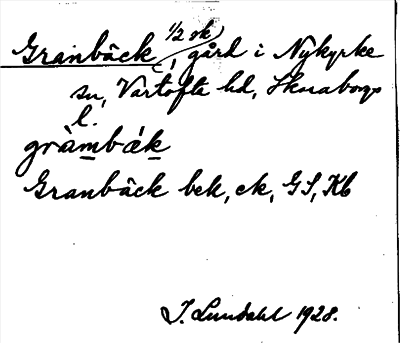 Granbäck, 1/2 sk, gård i Nykyrke
sn, Vartofta hd, Skaraborgs
l.
gràmbǽk
Granbäck bek, ek, GS, Kb
I. Lundahl 1928.